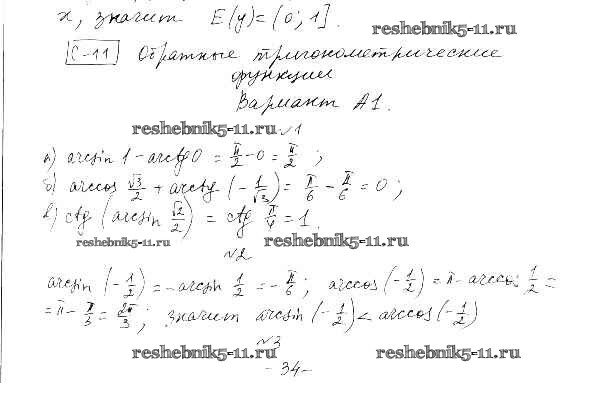 x, значит E(y)=(0; 1].
reshebnik5-11.ru
С-11 Обратные тригонометрические
функции
Вариант А1.
reshebnik5-11.ru №1
а) arcsin 1 - arctg 0 = π/2 - 0 = π/2 ;
б) arccos √3/2 + arctg (-1/√3) = π/6 - π/6 = 0 ;
в) ctg (arcsin √2/2) = ctg π/4 = 1.
reshebnik5-11.ru reshebnik5-11.ru
№2
arcsin (-1/2) = -arcsin 1/2 = -π/6 ; arccos (-1/2) = π - arccos 1/2 =
= π - π/3 = 2π/3 ; значит arcsin (-1/2) < arccos (-1/2)
№3
reshebnik5-11.ru reshebnik5-11.ru
- 34 -